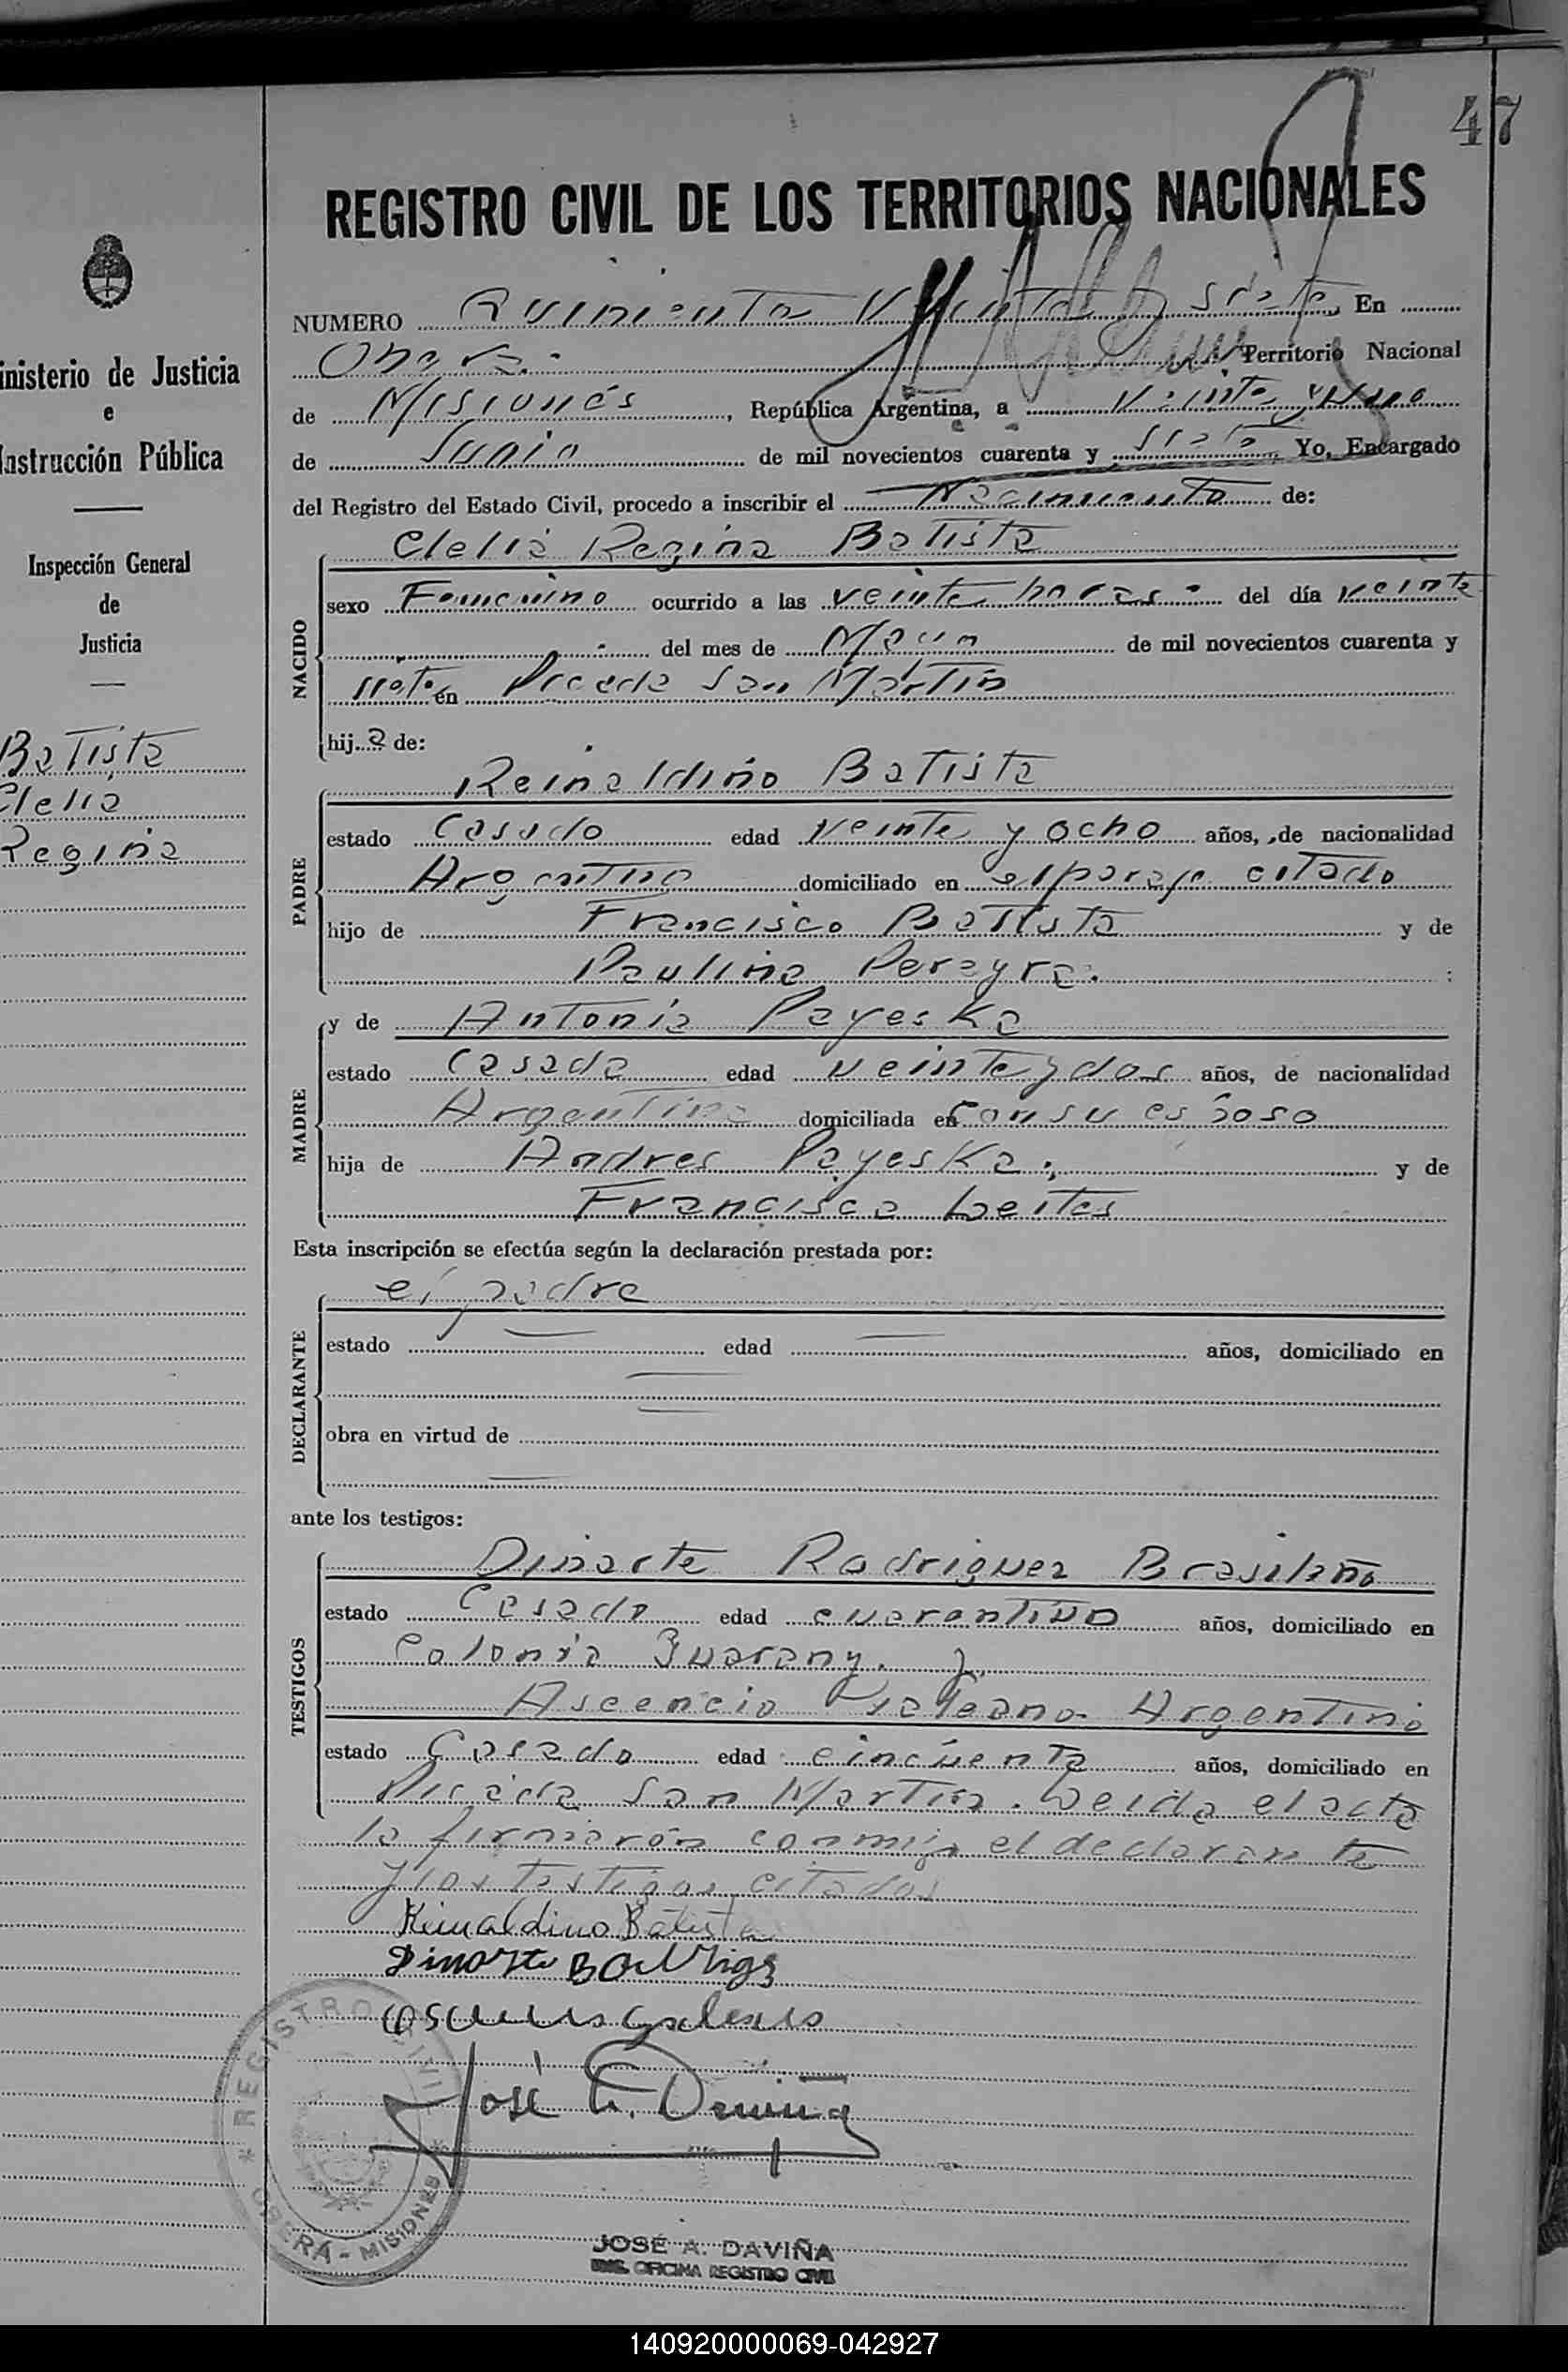 47
REGISTRO CIVIL DE LOS TERRITORIOS NACIONALES
NUMERO Quinienta Veinte y siete En
Obera. Territorio Nacional
de Misiones, República Argentina, a Veinte y uno
de Junio de mil novecientos cuarenta y siete Yo, Encargado
del Registro del Estado Civil, procedo a inscribir el Nacimiento de:
NACIDO
Clelia Regina Batista
sexo Femenino ocurrido a las veinte horas del día veinte
del mes de Mayo de mil novecientos cuarenta y
siete en Picada San Martin
hija de:
PADRE
Reinaldino Batista
estado Casado edad veinte y ocho años, de nacionalidad
Argentina domiciliado en el paraje citado
hijo de Francisco Batista y de
Paulina Pereyra.
MADRE
y de Antonia Payeska
estado Casada edad veinte y dos años, de nacionalidad
Argentina domiciliada en con su esposo
hija de Andres Payeska y de
Francisca Leites
Esta inscripción se efectúa según la declaración prestada por:
DECLARANTE
el padre
estado edad años, domiciliado en
obra en virtud de
ante los testigos:
TESTIGOS
Dinarte Rodriguez Brasileño
estado Casado edad años, domiciliado en
Colonia Guarany. y
Ascencio Galeano Argentino
estado Casado edad cincuenta años, domiciliado en
Picada San Martin. Leida el acta
la firmarón conmigo el declarante
y los testigos citados
Reinaldino Batista
Dinarte
Galeano
José A. Daviña
REGISTRO CIVIL
OBERA - MISIONES
JOSÉ A. DAVIÑA
ENC. OFICINA REGISTRO CIVIL
inisterio de Justicia
e
Instrucción Pública
Inspección General
de
Justicia
Batista
Clelia
Regina
140920000069-042927